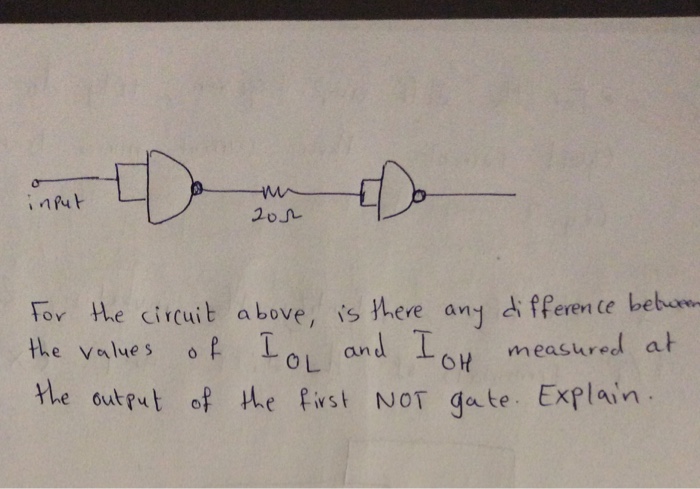 input
20Ω
For the circuit above, is there any difference between
the values of I OL and I OH measured at
the output of the first NOT gate. Explain.